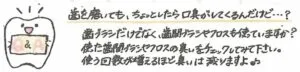 Q&A
歯を磨いても、ちょっとしたら口臭がしてくるんだけど…?
歯ブラシだけでなく、歯間ブラシやフロスも使っていますか?
使た歯間ブラシやフロスの臭いをチェックしてみて下さい。
使う回数が増えるほど臭いは減りますよ♪